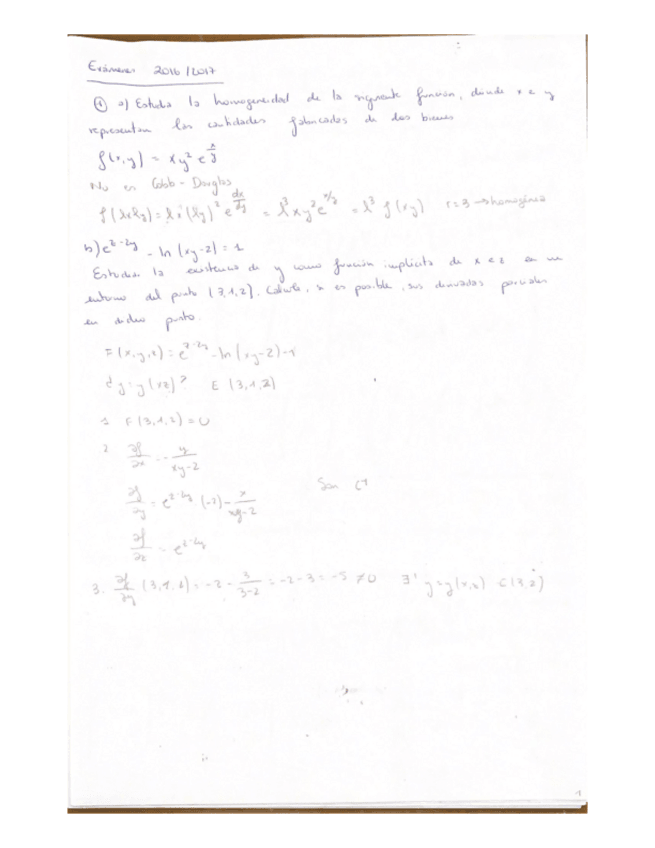 Exámenes 2016/2017
① a) Estudia la homogeneidad de la siguiente función, donde x e y
representan las cantidades fabricadas de dos bienes
f(x,y) = xy² e^(x/y)
No es Cobb-Douglas
f(λx λy) = λx (λy)² e^(λx/λy) = λ³xy²e^(x/y) = λ³ f(xy) r=3 → homogénea
b) e^(z-2y) - ln(xy-2) = 1
Estudiar la existencia de y como función implícita de x e z en un
entorno del punto (3,1,2). Calcule, si es posible, sus derivadas parciales
en dicho punto.
F(x,y,z) = e^(z-2y) - ln(xy-2) - 1
¿y=y(xz)? E (3,1,2)
1. F(3,1,2) = 0
2. ∂f/∂x = - y/(xy-2)
∂f/∂y = e^(z-2y) (-2) - x/(xy-2) Son C¹
∂f/∂z = e^(z-2y)
3. ∂f/∂y (3,1,2) = -2 - 3/(3-2) = -2-3 = -5 ≠ 0 ∃¹ y=y(x,z) E(3,2)
1